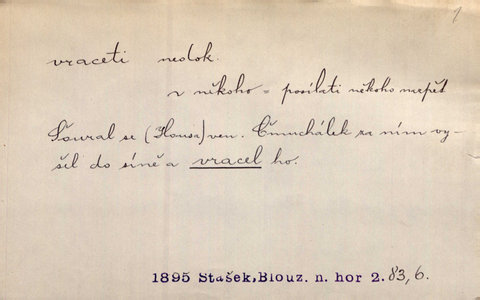 1
vraceti nedok.
v. někoho = posílati někoho nazpět
Šoural se (Housa) ven. Čmuchálek za ním vy-
šel do síně a vracel ho.
1895 Stašek, Blouz. n. hor 2. 83, 6.